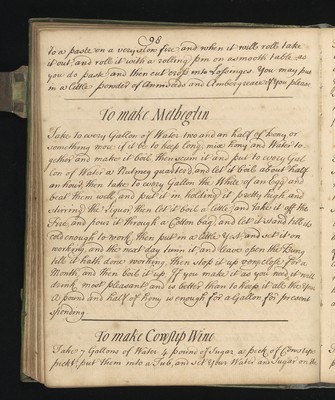 98
to a paste on a very slow fire, and when it will role take
it out, and role it with a rolling pin on a smooth table, as
you do paste, and then cut cross into Lossinges. You may put
in a little powder of Annisseeds and Ambergreace if you please
To make Metheglin
Take to every Gallon of Water two and an half of hony or
something more if it be to keep long. mix hony and Water to-
gether and make it boil, then scum it and put to every Gal
lon of Water a Nutmeg quartered, and let it boil about half
an hour, then take to every Gallon the White of an Egg and
beat them well, and put it in holding it pretty high and
stirring the Liquor, then let it boil a little, and take it off the
Fire, and pour it through a Cotton bag, and let it stand till its
cold enough to work, then put in a little Yest, and set it on
working, and the next day turn it and leave open the Bung
till it hath done working, then stop it up very close for a
Month, and then botle it up. If you make it as you need, it will
drink most pleasant, and is better than to keep it all the Year
A pound and half of hony is enough for a Gallon for present
spending
To make Cowslip Wine
Take 7 Gallons of Water 4 pound of Sugar, a peck of Cowslips
pickt, put them into a Tub, and set your Water and Sugar on the